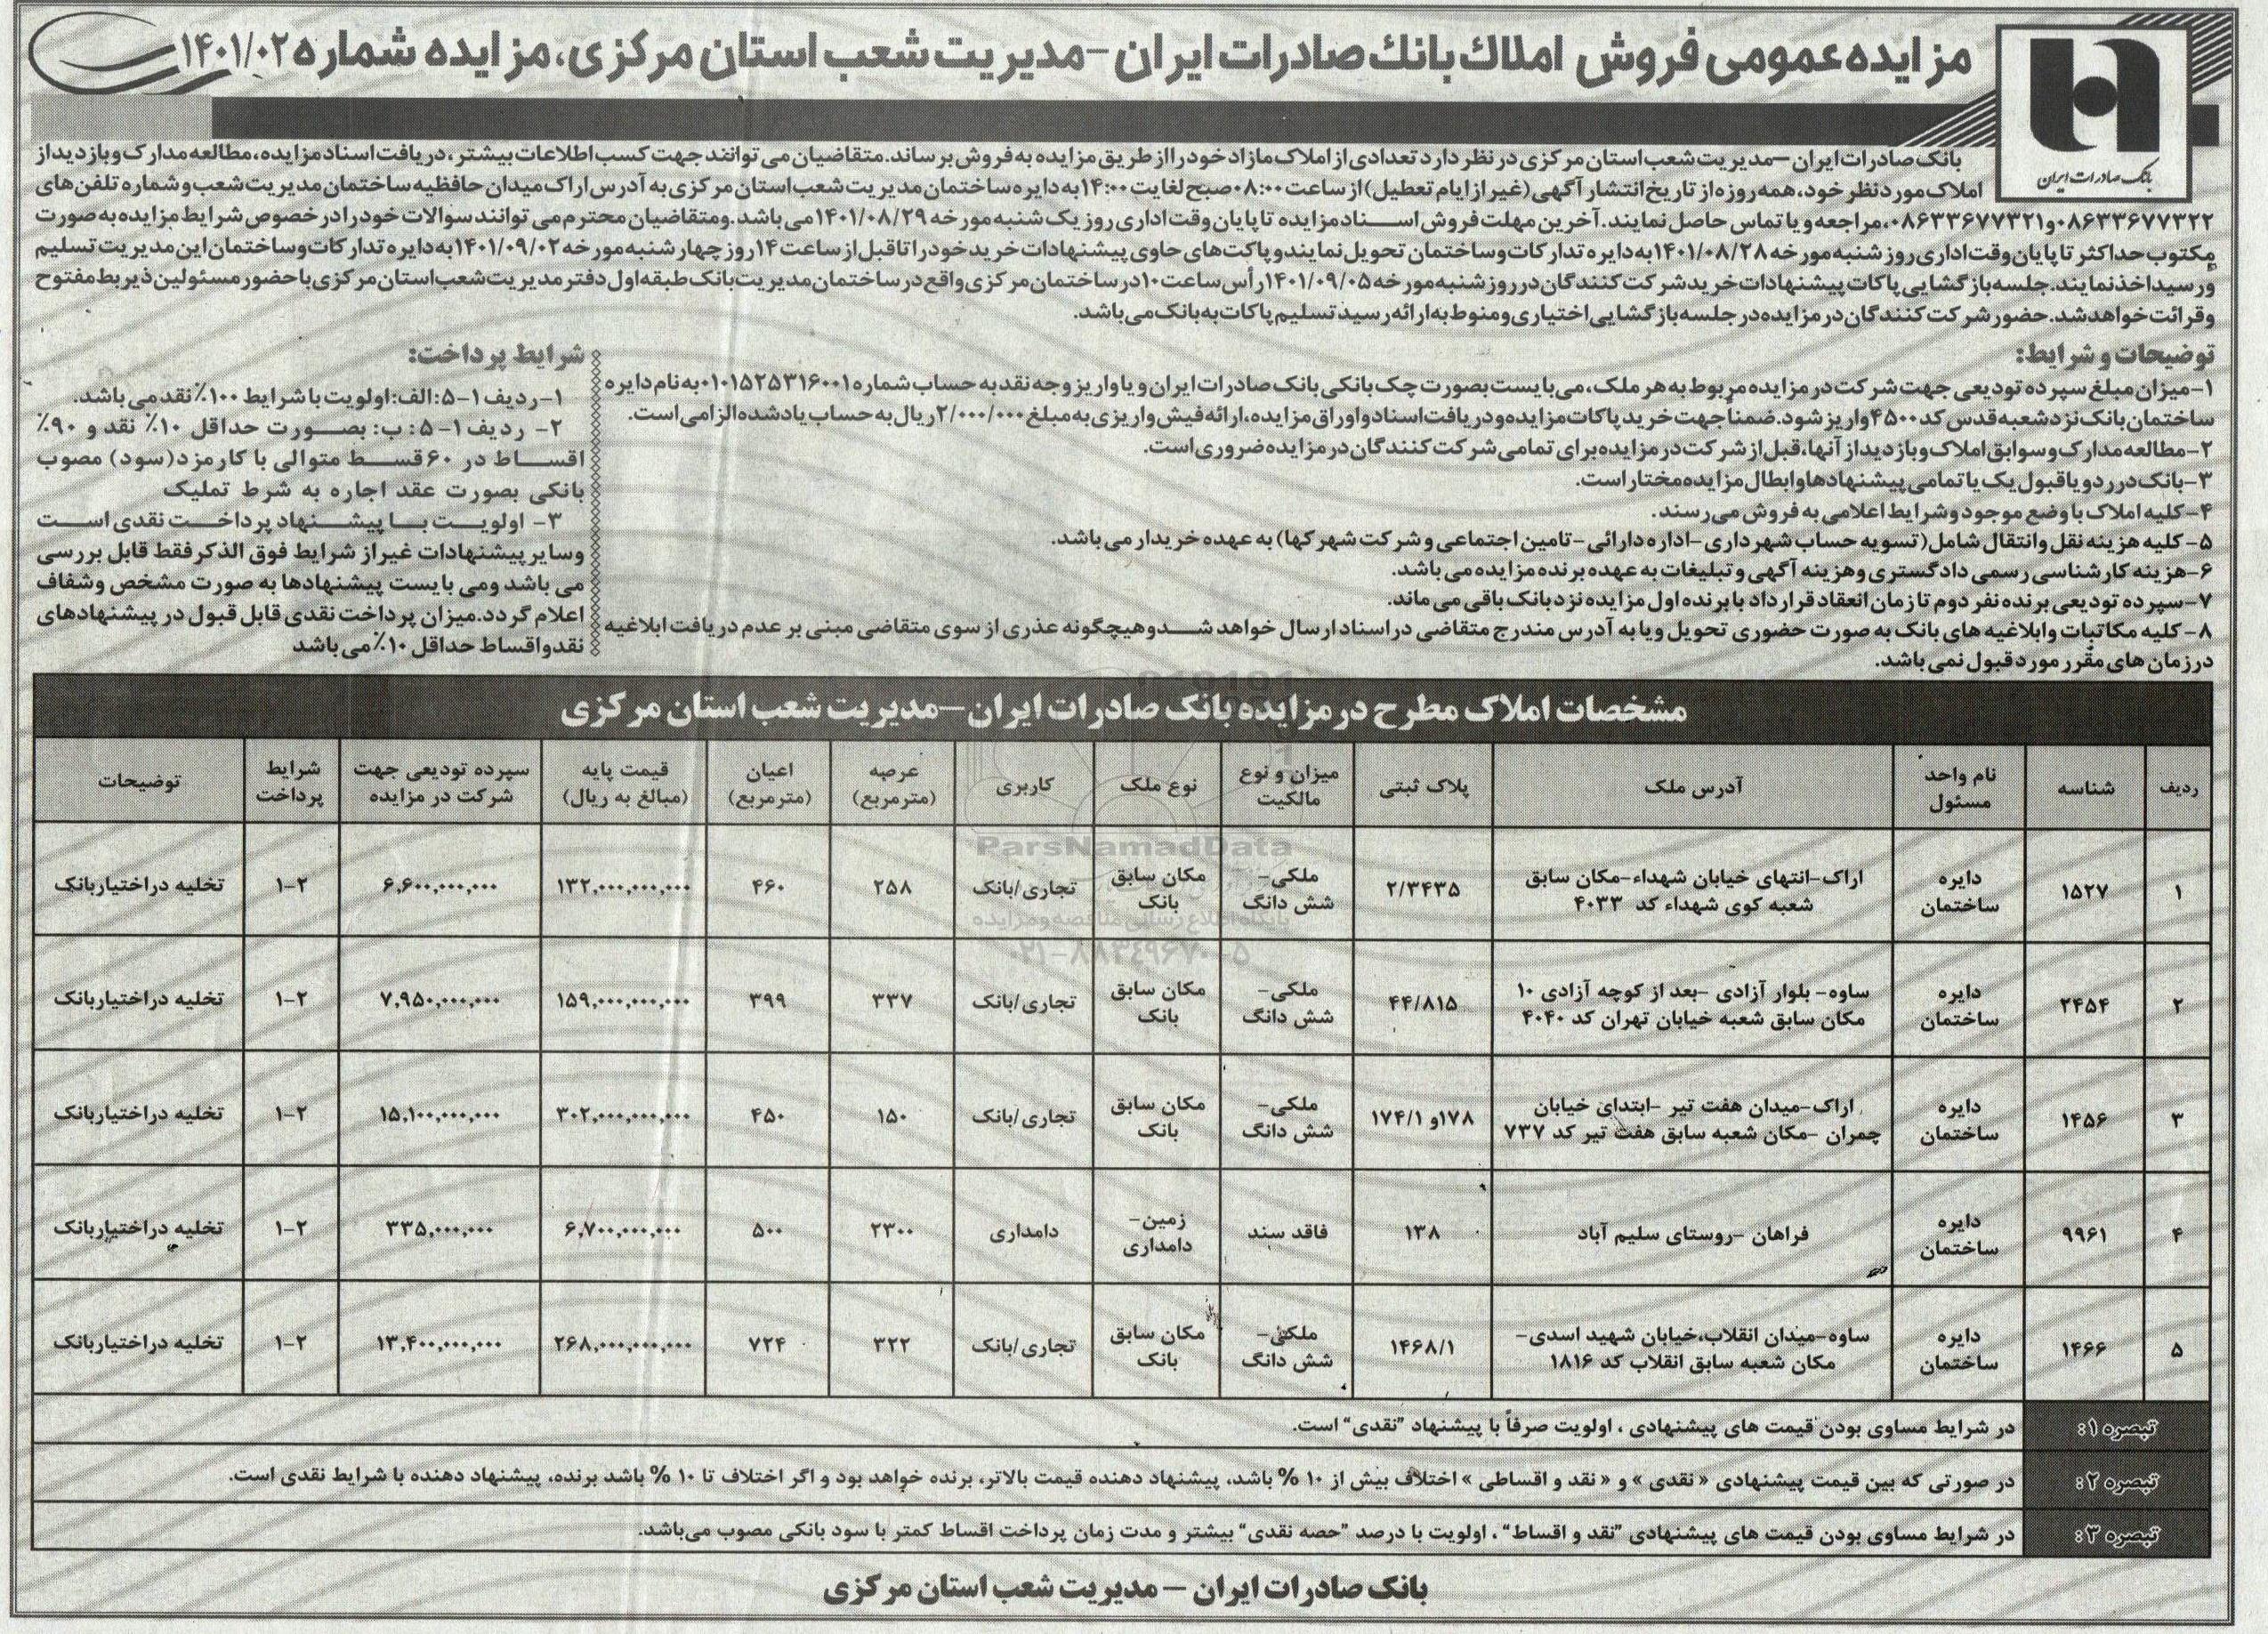 مزایده عمومی فروش املاک بانک صادرات ایران -مدیریت شعب استان مرکزی، مزایده شماره ۱۴۰۱/۰۲
بانک صادرات ایران
بانک صادرات ایران –مدیریت شعب استان مرکزی در نظر دارد تعدادی از املاک مازاد خود را از طریق مزایده به فروش برساند. متقاضیان می توانند جهت کسب اطلاعات بیشتر، دریافت اسناد مزایده، مطالعه مدارک و بازدید از
املاک مورد نظر خود، همه روزه از تاریخ انتشار آگهی (غیر از ایام تعطیل) از ساعت ۰۸:۰۰ صبح لغایت ۱۴:۰۰ به دایره ساختمان مدیریت شعب استان مرکزی به آدرس اراک میدان حافظیه ساختمان مدیریت شعب و شماره تلفن های
۰۸۶۳۳۶۷۷۳۲۲ و ۰۸۶۳۳۶۷۷۳۲۱، مراجعه و یا تماس حاصل نمایند. آخرین مهلت فروش اسناد مزایده تا پایان وقت اداری روز یک شنبه مورخه ۱۴۰۱/۰۸/۲۹ می باشد. ومتقاضیان محترم می توانند سوالات خود را در خصوص شرایط مزایده به صورت
مکتوب حداکثر تا پایان وقت اداری روز شنبه مورخه ۱۴۰۱/۰۸/۲۸ به دایره تدارکات و ساختمان تحویل نمایند و پاکت های حاوی پیشنهادات خرید خود را تا قبل از ساعت ۱۴ روز چهارشنبه مورخه ۱۴۰۱/۰۹/۰۲ به دایره تدارکات و ساختمان این مدیریت تسلیم
و رسید اخذ نمایند. جلسه بازگشایی پاکات پیشنهادات خرید شرکت کنندگان در روز شنبه مورخه ۱۴۰۱/۰۹/۰۵ رأس ساعت ۱۰ در ساختمان مرکزی واقع در ساختمان مدیریت بانک طبقه اول دفتر مدیریت شعب استان مرکزی با حضور مسئولین ذیربط مفتوح
و قرائت خواهد شد. حضور شرکت کنندگان در مزایده در جلسه بازگشایی اختیاری و منوط به ارائه رسید تسلیم پاکات به بانک می باشد.
توضیحات و شرایط:
۱-میزان مبلغ سپرده تودیعی جهت شرکت در مزایده مربوط به هر ملک، می بایست بصورت چک بانکی بانک صادرات ایران و یا واریز وجه نقد به حساب شماره ۰۱۰۱۵۲۵۳۱۶۰۰۱ به نام دایره
ساختمان بانک نزد شعبه قدس کد ۴۵۰۰ واریز شود. ضمناً جهت خرید پاکات مزایده و دریافت اسناد و اوراق مزایده، ارائه فیش واریزی به مبلغ ۲/۰۰۰/۰۰۰ ریال به حساب یاد شده الزامی است.
۲-مطالعه مدارک و سوابق املاک و بازدید از آنها، قبل از شرکت در مزایده برای تمامی شرکت کنندگان در مزایده ضروری است.
۳-بانک در رد و یا قبول یک یا تمامی پیشنهادها و ابطال مزایده مختار است.
۴-کلیه املاک با وضع موجود و شرایط اعلامی به فروش می رسند.
۵-کلیه هزینه نقل و انتقال شامل (تسویه حساب شهرداری -اداره دارائی -تامین اجتماعی و شرکت شهرکها) به عهده خریدار می باشد.
۶-هزینه کارشناسی رسمی دادگستری و هزینه آگهی و تبلیغات به عهده برنده مزایده می باشد.
۷-سپرده تودیعی برنده نفر دوم تا زمان انعقاد قرارداد با برنده اول مزایده نزد بانک باقی می ماند.
۸-کلیه مکاتبات و ابلاغیه های بانک به صورت حضوری تحویل و یا به آدرس مندرج متقاضی در اسناد ارسال خواهد شد و هیچگونه عذری از سوی متقاضی مبنی بر عدم دریافت ابلاغیه
در زمان های مقرر مورد قبول نمی باشد.
شرایط پرداخت:
۱-ردیف ۱-۵: الف: اولویت با شرایط ۱۰۰٪ نقد می باشد.
۲- ردیف ۱-۵: ب: بصورت حداقل ۱۰٪ نقد و ۹۰٪
اقساط در ۶۰ قسط متوالی با کارمزد (سود) مصوب
بانکی بصورت عقد اجاره به شرط تملیک
۳- اولویت با پیشنهاد پرداخت نقدی است
وسایر پیشنهادات غیر از شرایط فوق الذکر فقط قابل بررسی
می باشد ومی بایست پیشنهادها به صورت مشخص وشفاف
اعلام گردد.میزان پرداخت نقدی قابل قبول در پیشنهادهای
نقدواقساط حداقل ۱۰٪ می باشد
مشخصات املاک مطرح در مزایده بانک صادرات ایران –مدیریت شعب استان مرکزی
ردیف شناسه نام واحد مسئول آدرس ملک پلاک ثبتی میزان و نوع مالکیت نوع ملک کاربری عرصه (مترمربع) اعیان (مترمربع) قیمت پایه (مبالغ به ریال) سپرده تودیعی جهت شرکت در مزایده شرایط پرداخت توضیحات
۱ ۱۵۲۷ دایره ساختمان اراک-انتهای خیابان شهداء-مکان سابق شعبه کوی شهداء کد ۴۰۳۳ ۲/۳۴۳۵ ملکی- شش دانگ مکان سابق بانک تجاری/بانک ۲۵۸ ۴۶۰ ۱۳۲,۰۰۰,۰۰۰,۰۰۰ ۶,۶۰۰,۰۰۰,۰۰۰ ۱-۲ تخلیه در اختیار بانک
۲ ۲۴۵۴ دایره ساختمان ساوه- بلوار آزادی -بعد از کوچه آزادی ۱۰ مکان سابق شعبه خیابان تهران کد ۴۰۴۰ ۴۴/۸۱۵ ملکی- شش دانگ مکان سابق بانک تجاری/بانک ۳۳۷ ۳۹۹ ۱۵۹,۰۰۰,۰۰۰,۰۰۰ ۷,۹۵۰,۰۰۰,۰۰۰ ۱-۲ تخلیه در اختیار بانک
۳ ۱۴۵۶ دایره ساختمان اراک-میدان هفت تیر -ابتدای خیابان چمران -مکان شعبه سابق هفت تیر کد ۷۳۷ ۱۷۸و ۱۷۴/۱ ملکی- شش دانگ مکان سابق بانک تجاری/بانک ۱۵۰ ۴۵۰ ۳۰۲,۰۰۰,۰۰۰,۰۰۰ ۱۵,۱۰۰,۰۰۰,۰۰۰ ۱-۲ تخلیه در اختیار بانک
۴ ۹۹۶۱ دایره ساختمان فراهان -روستای سلیم آباد ۱۳۸ فاقد سند زمین- دامداری دامداری ۲۳۰۰ ۵۰۰ ۶,۷۰۰,۰۰۰,۰۰۰ ۳۳۵,۰۰۰,۰۰۰ ۱-۲ تخلیه در اختیار بانک
۵ ۱۴۶۶ دایره ساختمان ساوه-میدان انقلاب،خیابان شهید اسدی- مکان شعبه سابق انقلاب کد ۱۸۱۶ ۱۴۶۸/۱ ملکی- شش دانگ مکان سابق بانک تجاری/بانک ۳۲۲ ۷۲۴ ۲۶۸,۰۰۰,۰۰۰,۰۰۰ ۱۳,۴۰۰,۰۰۰,۰۰۰ ۱-۲ تخلیه در اختیار بانک
تبصره ۱: در شرایط مساوی بودن قیمت های پیشنهادی ، اولویت صرفاً با پیشنهاد "نقدی" است.
تبصره ۲: در صورتی که بین قیمت پیشنهادی « نقدی » و « نقد و اقساطی » اختلاف بیش از ۱۰ % باشد، پیشنهاد دهنده قیمت بالاتر، برنده خواهد بود و اگر اختلاف تا ۱۰ % باشد برنده، پیشنهاد دهنده با شرایط نقدی است.
تبصره ۳: در شرایط مساوی بودن قیمت های پیشنهادی "نقد و اقساط" ، اولویت با درصد "حصه نقدی" بیشتر و مدت زمان پرداخت اقساط کمتر با سود بانکی مصوب می‌باشد.
بانک صادرات ایران – مدیریت شعب استان مرکزی
ParsNamadData
پایگاه اطلاع رسانی مناقصه و مزایده
۰۲۱-۸۸۳۴۹۶۷۰-۵